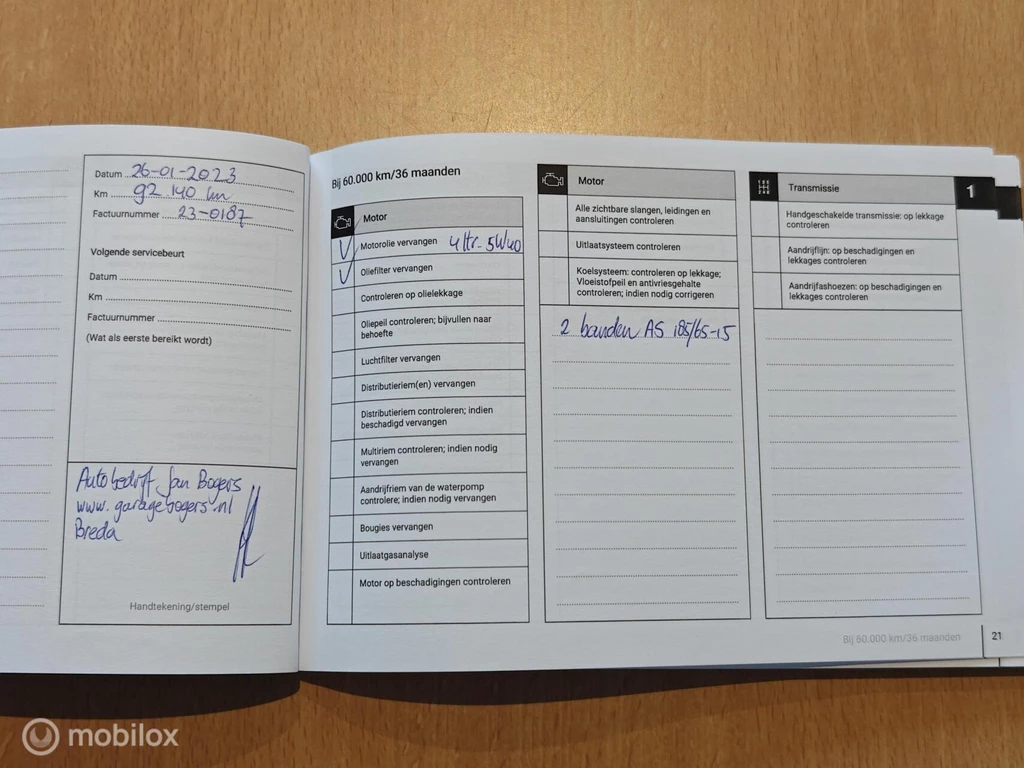 Datum 26-01-2023
Km 92 140 km
Factuurnummer 23-0187
Volgende servicebeurt
Datum
Km
Factuurnummer
(Wat als eerste bereikt wordt)
Autobedrijf Jan Bogers
www.garagebogers.nl
Breda
Handtekening/stempel
Bij 60.000 km/36 maanden
Motor
Motorolie vervangen 4 ltr - 5W40
Oliefilter vervangen
Controleren op olielekkage
Oliepeil controleren; bijvullen naar
behoefte
Luchtfilter vervangen
Distributieriem(en) vervangen
Distributieriem controleren; indien
beschadigd vervangen
Multiriem controleren; indien nodig
vervangen
Aandrijfriem van de waterpomp
controlere; indien nodig vervangen
Bougies vervangen
Uitlaatgasanalyse
Motor op beschadigingen controleren
Motor
Alle zichtbare slangen, leidingen en
aansluitingen controleren
Uitlaatsysteem controleren
Koelsysteem: controleren op lekkage;
Vloeistofpeil en antivriesgehalte
controleren; indien nodig corrigeren
2 banden AS 185/65-15
Transmissie
Handgeschakelde transmissie: op lekkage
controleren
Aandrijflijn: op beschadigingen en
lekkages controleren
Aandrijfashoezen: op beschadigingen en
lekkages controleren
1
Bij 60.000 km/36 maanden
21
mobilox